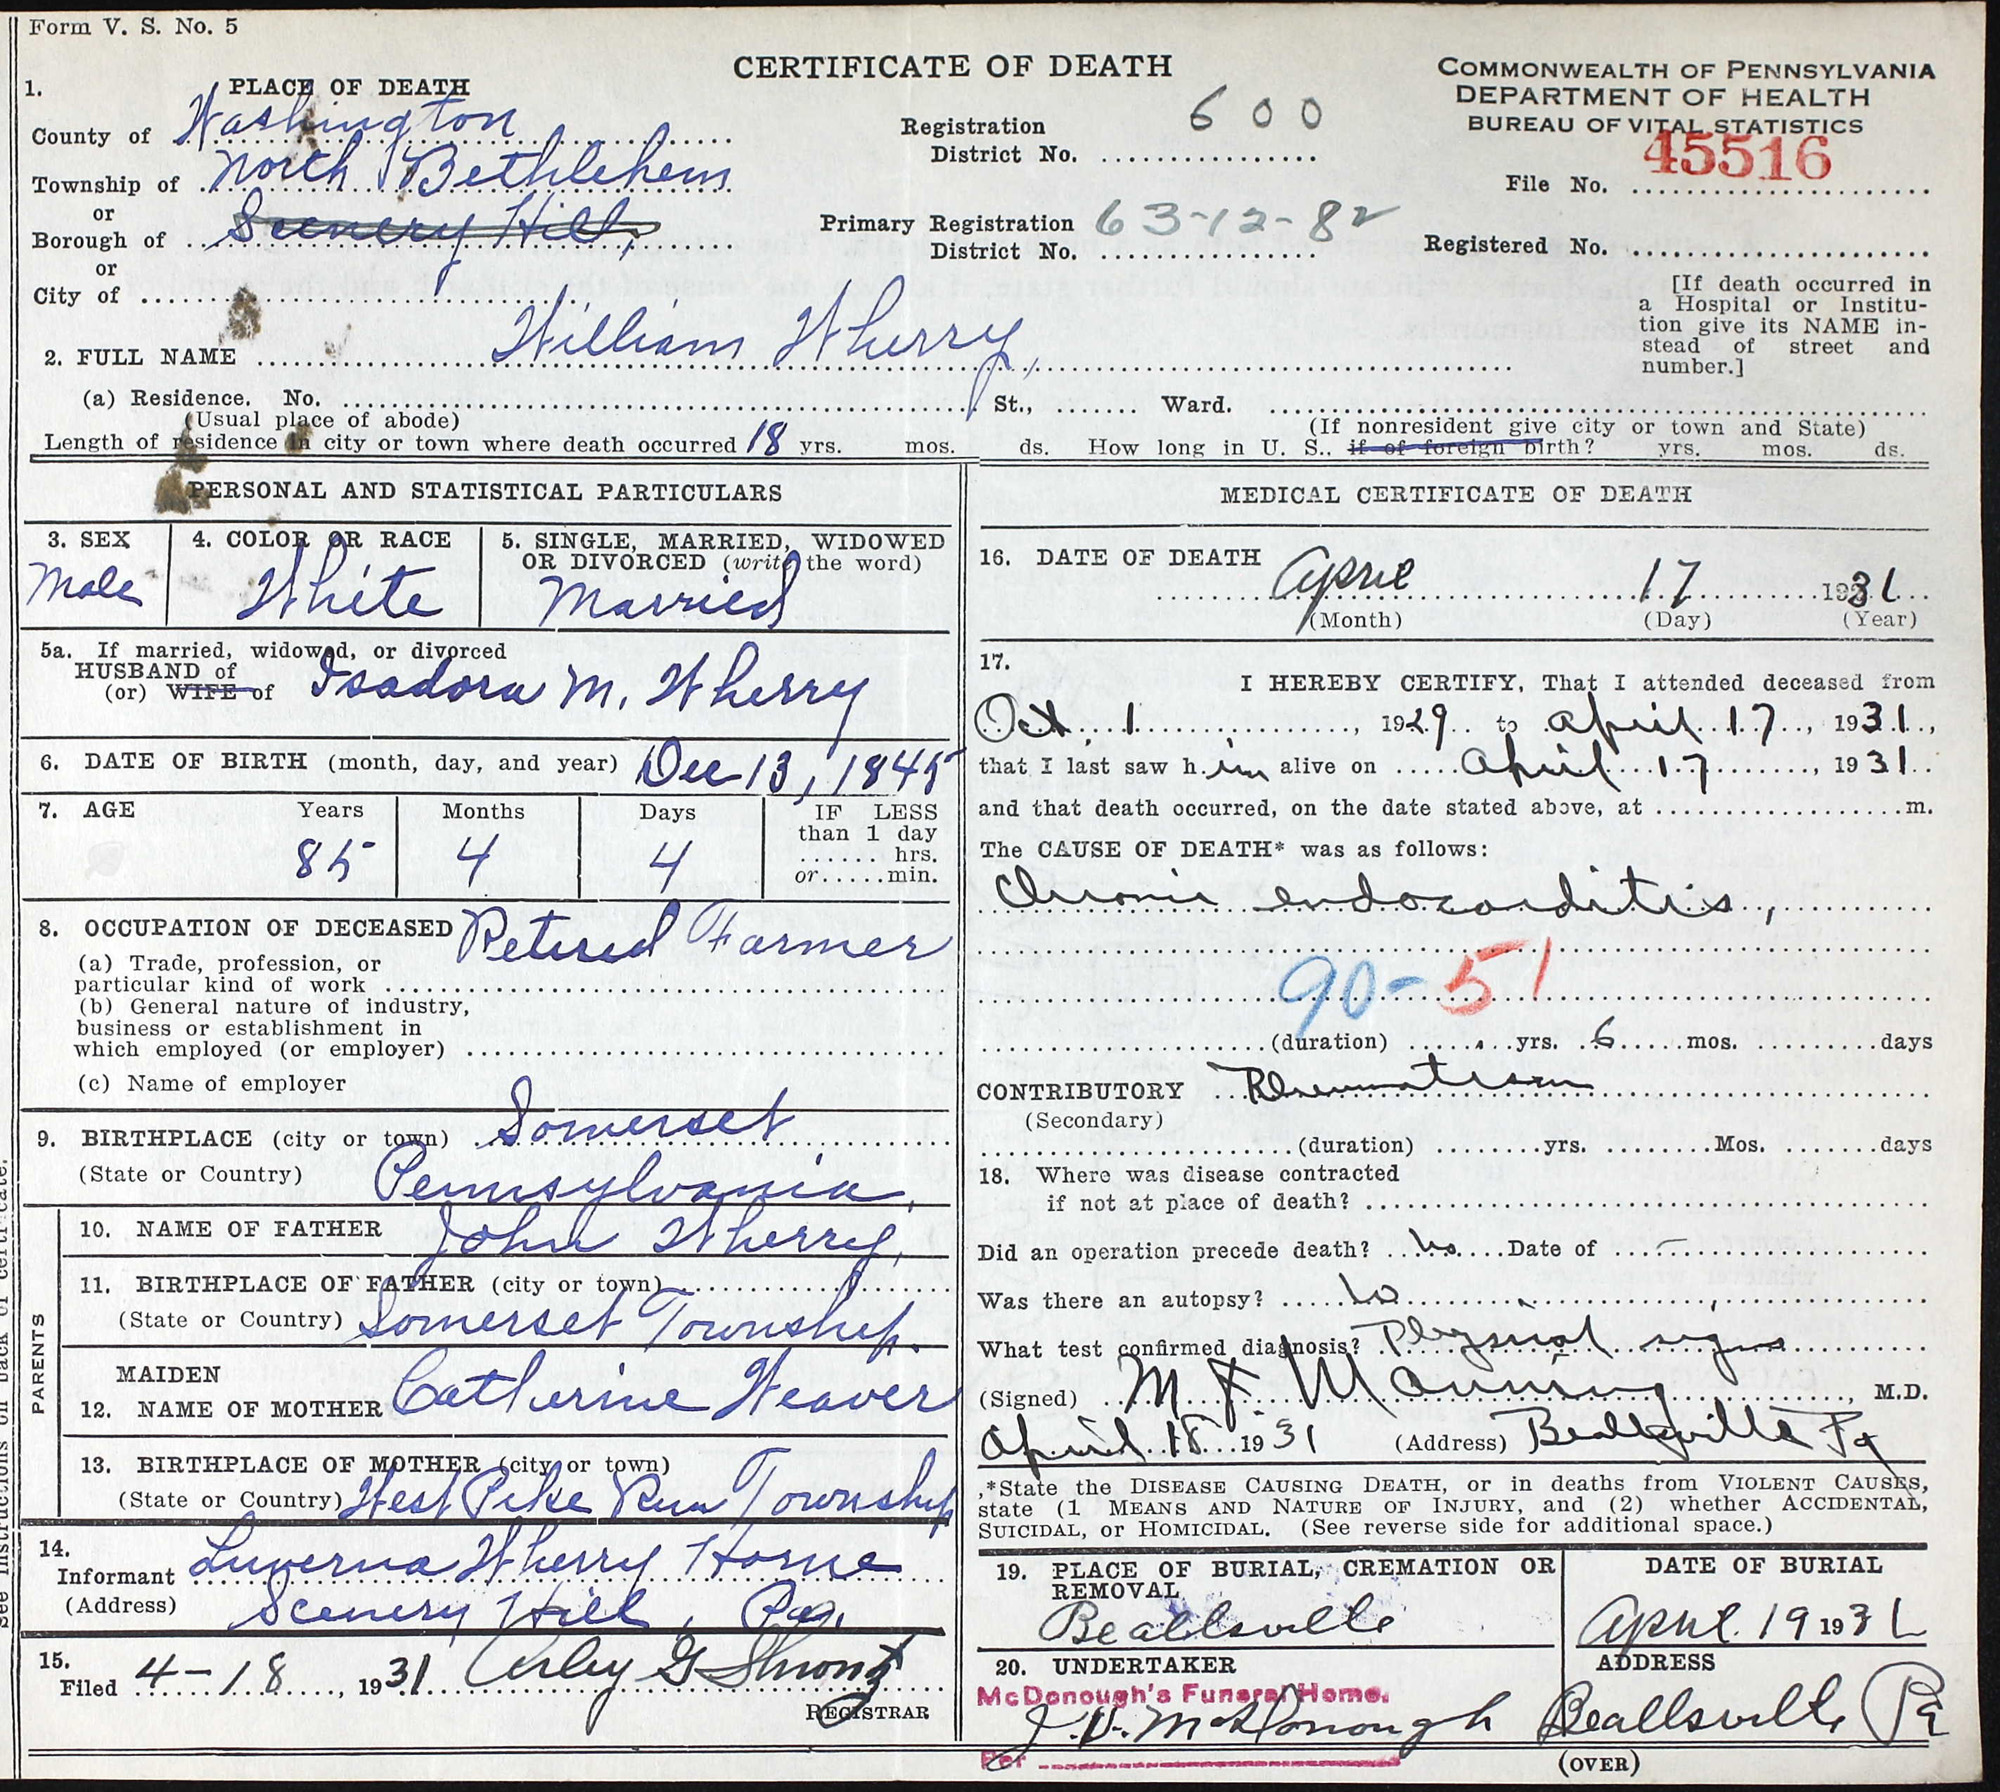 Form V. S. No. 5
CERTIFICATE OF DEATH
COMMONWEALTH OF PENNSYLVANIA
DEPARTMENT OF HEALTH
BUREAU OF VITAL STATISTICS
1. PLACE OF DEATH
County of Washington
Township of North Bethlehem
or
Borough of Scenery Hill,
or
City of
Registration District No. 600
Primary Registration District No. 63-12-82
File No. 45516
Registered No.
[If death occurred in
a Hospital or Institu-
tion give its NAME in-
stead of street and
number.]
2. FULL NAME William Wherry,
(a) Residence. No. St., Ward.
(Usual place of abode) (If nonresident give city or town and State)
Length of residence in city or town where death occurred 18 yrs. mos. ds. How long in U. S., if of foreign birth? yrs. mos. ds.
PERSONAL AND STATISTICAL PARTICULARS
3. SEX
Male
4. COLOR OR RACE
White
5. SINGLE, MARRIED, WIDOWED
OR DIVORCED (write the word)
Married
5a. If married, widowed, or divorced
HUSBAND of
(or) WIFE of Isadora M. Wherry
6. DATE OF BIRTH (month, day, and year) Dec 13, 1845
7. AGE Years Months Days IF LESS
than 1 day
hrs.
or min.
85 4 4
8. OCCUPATION OF DECEASED Retired Farmer
(a) Trade, profession, or
particular kind of work
(b) General nature of industry,
business or establishment in
which employed (or employer)
(c) Name of employer
9. BIRTHPLACE (city or town) Somerset
(State or Country) Pennsylvania,
PARENTS
10. NAME OF FATHER John Wherry,
11. BIRTHPLACE OF FATHER (city or town)
(State or Country) Somerset Township.
MAIDEN
12. NAME OF MOTHER Catherine Weaver
13. BIRTHPLACE OF MOTHER (city or town)
(State or Country) West Pike Run Township
14.
Informant Luverna Wherry Horne
(Address) Scenery Hill, Pa.
15.
Filed 4-18, 1931
REGISTRAR
MEDICAL CERTIFICATE OF DEATH
16. DATE OF DEATH April 17 1931
(Month) (Day) (Year)
17.
I HEREBY CERTIFY, That I attended deceased from
Oct 1, 1929 to april 17, 1931,
that I last saw him alive on april 17, 1931
and that death occurred, on the date stated above, at m.
The CAUSE OF DEATH* was as follows:
Chronic endocarditis,
90-51
(duration) yrs. 6 mos. days
CONTRIBUTORY Rheumatism
(Secondary)
(duration) yrs. Mos. days
18. Where was disease contracted
if not at place of death?
Did an operation precede death? No Date of -
Was there an autopsy? No
What test confirmed diagnosis? Physical signs
(Signed) Manning, M.D.
April 18 1931 (Address) Beallsville Pa
*State the DISEASE CAUSING DEATH, or in deaths from VIOLENT CAUSES,
state (1 MEANS AND NATURE OF INJURY, and (2) whether ACCIDENTAL,
SUICIDAL, or HOMICIDAL. (See reverse side for additional space.)
19. PLACE OF BURIAL, CREMATION OR
REMOVAL
Beallsville
DATE OF BURIAL
April 19 1931
20. UNDERTAKER
McDonough's Funeral Home.
McDonough
Per
ADDRESS
Beallsville Pa
(OVER)
See instructions on back of certificate.